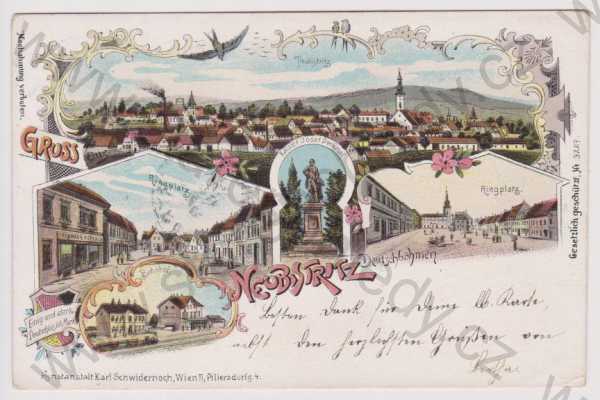 Nachahmung verboten.
Neubistritz
Gruss
Kaiser Josef Denkmal
Ringplatz
Ringplatz.
Gesetzlich geschützt.
Neubistritz
Deutschböhmen
Bahnhof
Einig und stark
Deutsch bis ins Mark
Besten Dank für Deine lb. Karte,
nebst den herzlichsten Grüßen von
Kunstanstalt Karl Schwidernoch, Wien II, Pillersdorfg. 4.